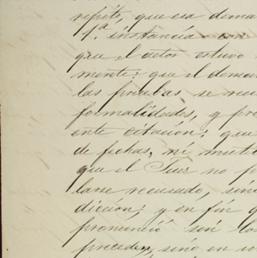 repito, que esa dema
1.ª instancia con
que el actor estuvo
mente: que el deman
las pruebas se rec
formalidades, y pre
ente citacion; que
de fechas, ni
que el Juez no po
larse recusado, sino
diccion; y en fin q
pronunció sin
proceden, sinó en